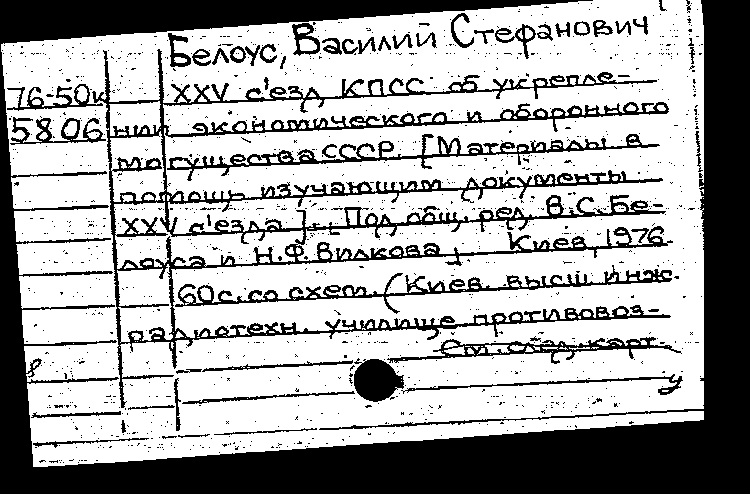 Белоус, Василий Стефанович
76-50к XXV с'езд КПСС об укрепле-
5806 нии экономического и оборонного
могущества СССР. [Материалы в
помощь изучающим документы
XXV с'езда]. Под общ. ред. В.С. Бе-
лоуса и Н.Ф. Вилкова. Киев, 1976
60с. со схем. (Киев. высш инж.
радиотехн. училище противовоз-
См. след. карт.
у